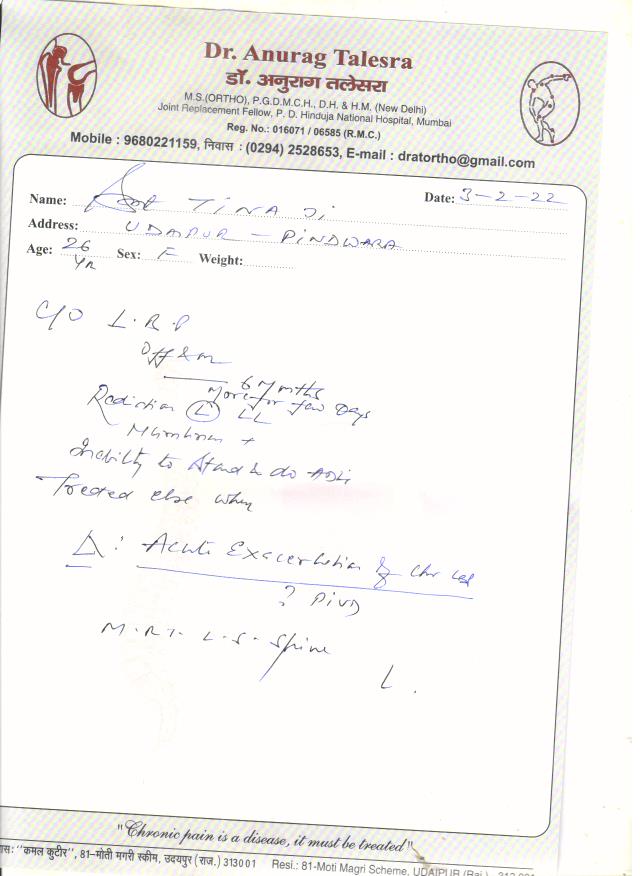 Dr. Anurag Talesra
डॉ. अनुराग तलेसरा
M.S.(ORTHO), P.G.D.M.C.H., D.H. & H.M. (New Delhi)
Joint Replacement Fellow, P. D. Hinduja National Hospital, Mumbai
Reg. No.: 016071 / 06585 (R.M.C.)
Mobile : 9680221159, निवास : (0294) 2528653, E-mail : dratortho@gmail.com
Name: TINA Ji Date: 3-2-22
Address: UDAIPUR - PINDWARA
Age: 26 Yr Sex: F Weight:
C/O L.B.P
Off & on
6 Mnths
More for few Days
Radiation (L) LL
+
Inability to Stand & do ADL
Treated else when
Δ: Acute Exacerbation of Chr LBP
? PIVD
M.R.I. L.S. Spine
L.
"Chronic pain is a disease, it must be treated"
ास: "कमल कुटीर", 81-मोती मगरी स्कीम, उदयपुर (राज.) 313001 Resi.: 81-Moti Magri Scheme, UDAIPUR (Raj.) 313 001